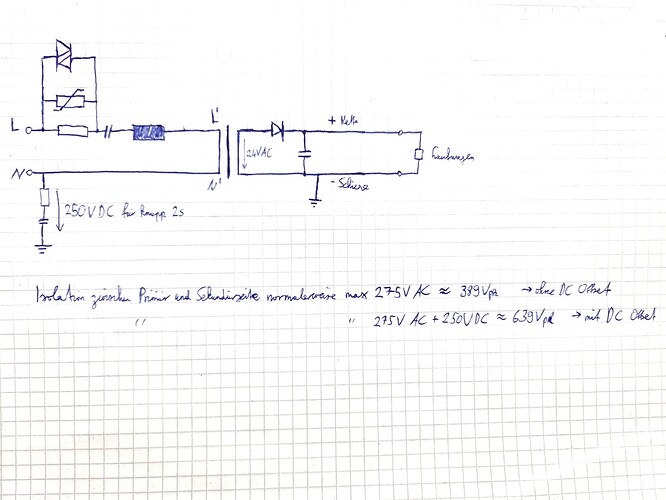 L
L'
+ Kette
24VAC
- Schiene
N
N'
250VDC für knapp 2s
Isolation zwischen Primär und Sekundärseite normalerweise max 275V AC ≈ 389Vpk → ohne DC Offset
" " 275V AC + 250VDC ≈ 639Vpk → mit DC Offset